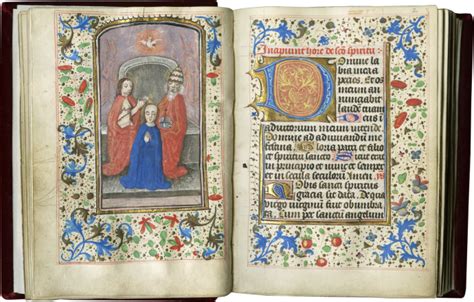 Incipiunt hore de sco spiritu
Domine
labia mea a
peries. Et os
meum an
nuntiabit
laudem tuam
Deus i
adiutorium meum intende.
Domine ad adiuuandum me
festina. Gloria patri et filio
et spiritui sancto. Sicut erat
in principio et nunc et semper
et in secula seculorum. Amen
Nobis sancti spiritus
gracia sit data. De qua
virgo virginum fuit obumbra
ta. Cum per sanctum angelum